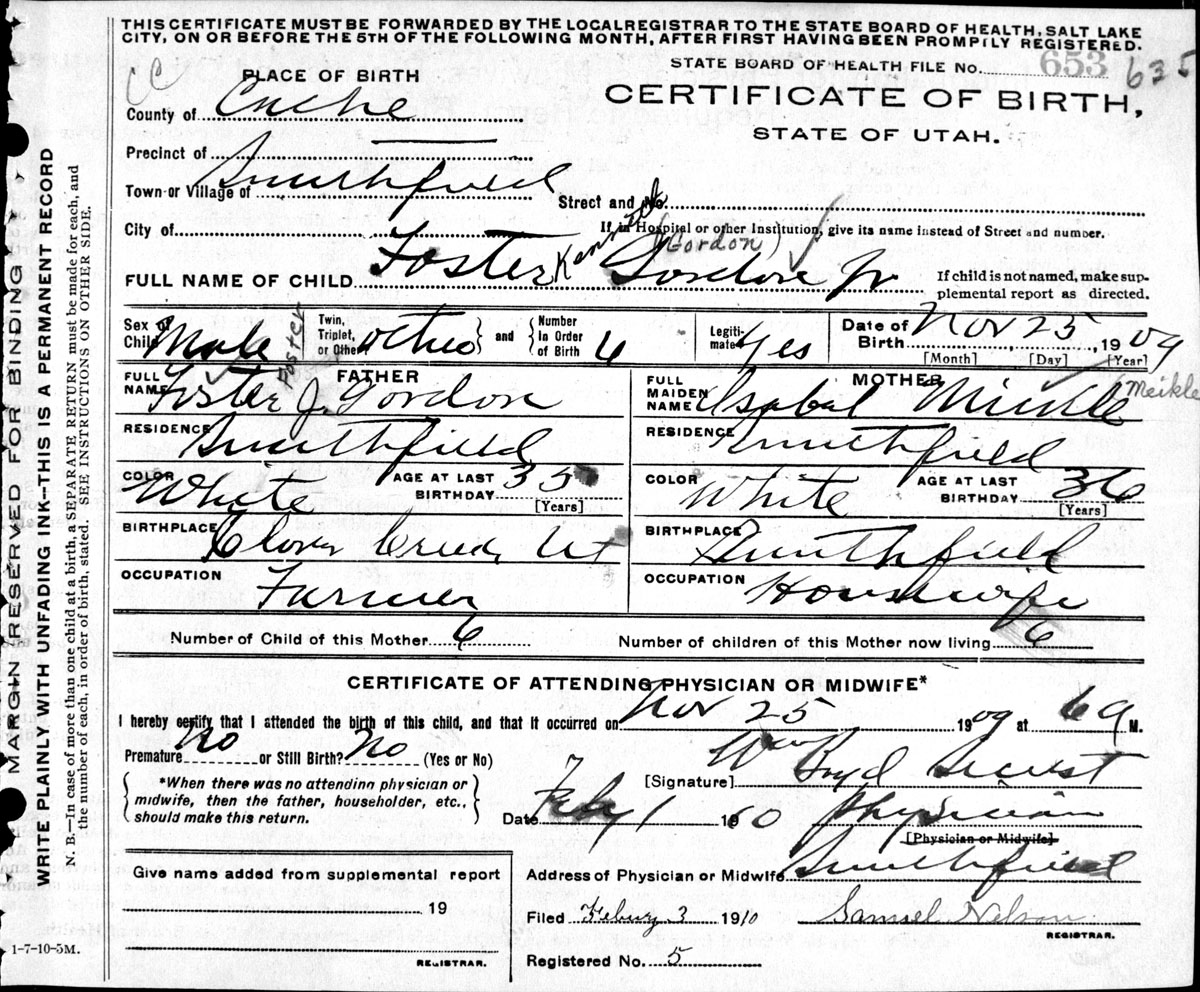 THIS CERTIFICATE MUST BE FORWARDED BY THE LOCAL REGISTRAR TO THE STATE BOARD OF HEALTH, SALT LAKE
CITY, ON OR BEFORE THE 5TH OF THE FOLLOWING MONTH, AFTER FIRST HAVING BEEN PROMPTLY REGISTERED.
STATE BOARD OF HEALTH FILE No. 653 635
CC
PLACE OF BIRTH
CERTIFICATE OF BIRTH,
STATE OF UTAH.
County of Cache
Precinct of
Town or Village of Smithfield
Street and No.
City of
If in Hospital or other Institution, give its name instead of Street and number.
(Gordon)
FULL NAME OF CHILD Foster Kenneth Gordon Jr
If child is not named, make supplemental report as directed.
Sex of Child Male
Twin, Triplet, or Other and Number In Order of Birth 6
Legitimate Yes
Date of Birth Nov 25, 1909
[Month] [Day] [Year]
Foster
FATHER
FULL NAME Foster J. Gordon
RESIDENCE Smithfield
COLOR White AGE AT LAST BIRTHDAY 35 [Years]
BIRTHPLACE Clover Creek, Ut
OCCUPATION Farmer
MOTHER
FULL MAIDEN NAME Isabel Meikle
RESIDENCE Smithfield
COLOR White AGE AT LAST BIRTHDAY 36 [Years]
BIRTHPLACE Smithfield
OCCUPATION Housewife
Number of Child of this Mother 6 Number of children of this Mother now living 6
CERTIFICATE OF ATTENDING PHYSICIAN OR MIDWIFE*
I hereby certify that I attended the birth of this child, and that it occurred on Nov 25 1909 at 6 a M.
Premature No or Still Birth? No (Yes or No)
*When there was no attending physician or
midwife, then the father, householder, etc.,
should make this return.
[Signature]
Date Feby 1 1910 Physician
[Physician or Midwife]
Address of Physician or Midwife Smithfield
Give name added from supplemental report
19
REGISTRAR.
Filed 3 1910 Samuel Nelson
REGISTRAR.
Registered No. 5
MARGIN RESERVED FOR BINDING
WRITE PLAINLY WITH UNFADING INK—THIS IS A PERMANENT RECORD
N. B.—In case of more than one child at a birth, a SEPARATE RETURN must be made for each, and
the number of each, in order of birth, stated. SEE INSTRUCTIONS ON OTHER SIDE.
1-7-10-5M.